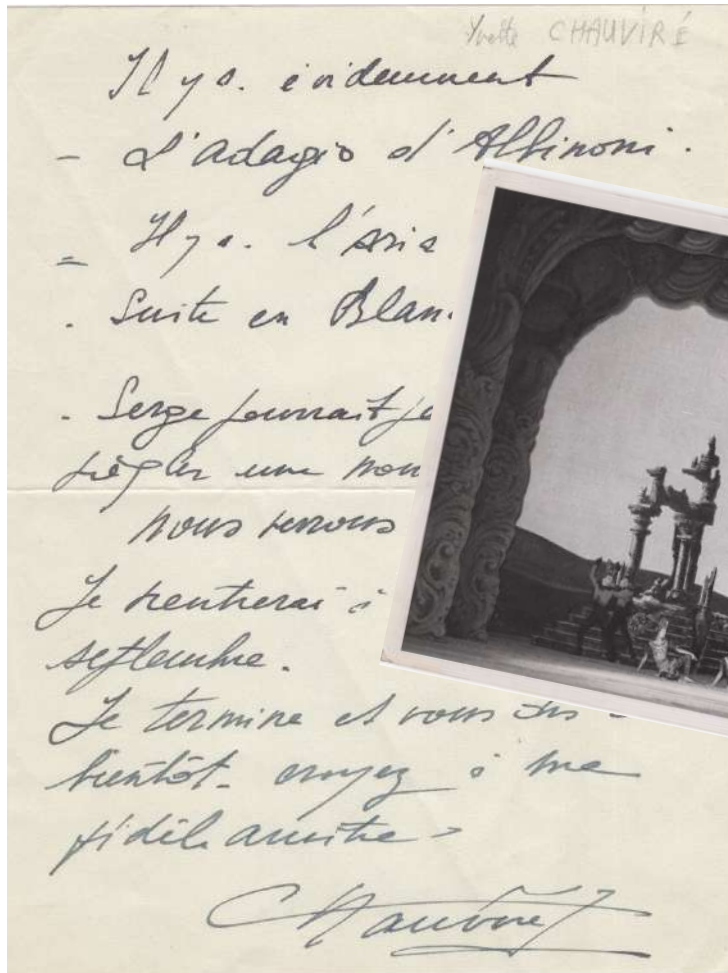 Yvette CHAUVIRÉ
Il y a. évidemment
- L'adagio d'Albinoni.
= Il y a. l'aria
. Suite en Blan
. Serge pourrait
régler une nou
nous verrons
Je rentrerai à
septembre.
Je termine et vous dis à
bientôt. croyez à ma
fidèle amitié
Chauviré